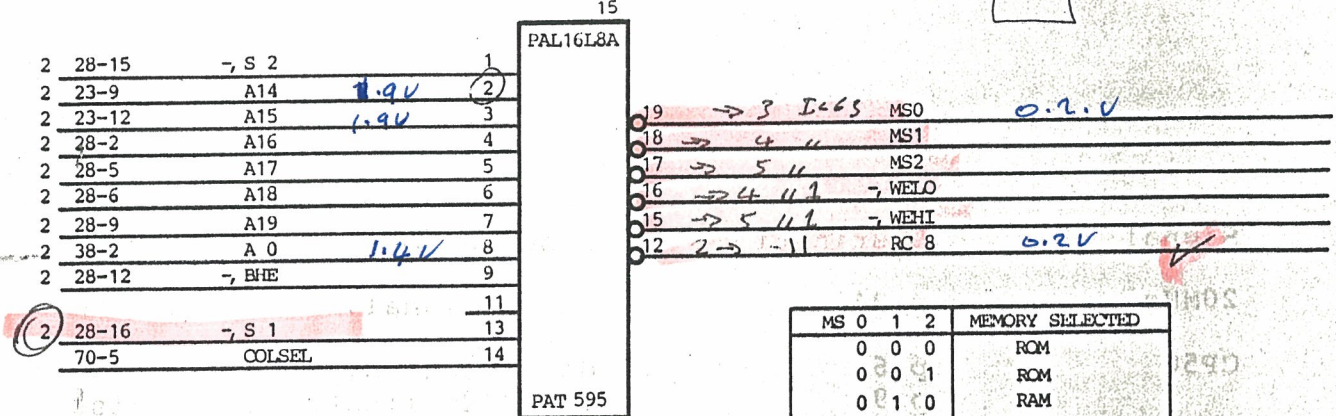 15
PAL16L8A
2 28-15 -, S 2 1
2 23-9 A14 1.9V 2
2 23-12 A15 1.9V 3
2 28-2 A16 4
2 28-5 A17 5
2 28-6 A18 6
2 28-9 A19 7
2 38-2 A 0 1.4V 8
2 28-12 -, BHE 9
11
2 28-16 -, S 1 13
70-5 COLSEL 14
PAT 595
19 → 3 IC63 MS0 0.2.V
18 → 4 " MS1
17 → 5 " MS2
16 → 4 " 1 -, WELO
15 → 5 " 1 -, WEHI
12 2 → -11 RC 8 0.2V
MS 0 1 2 MEMORY SELECTED
0 0 0 ROM
0 0 1 ROM
0 1 0 RAM